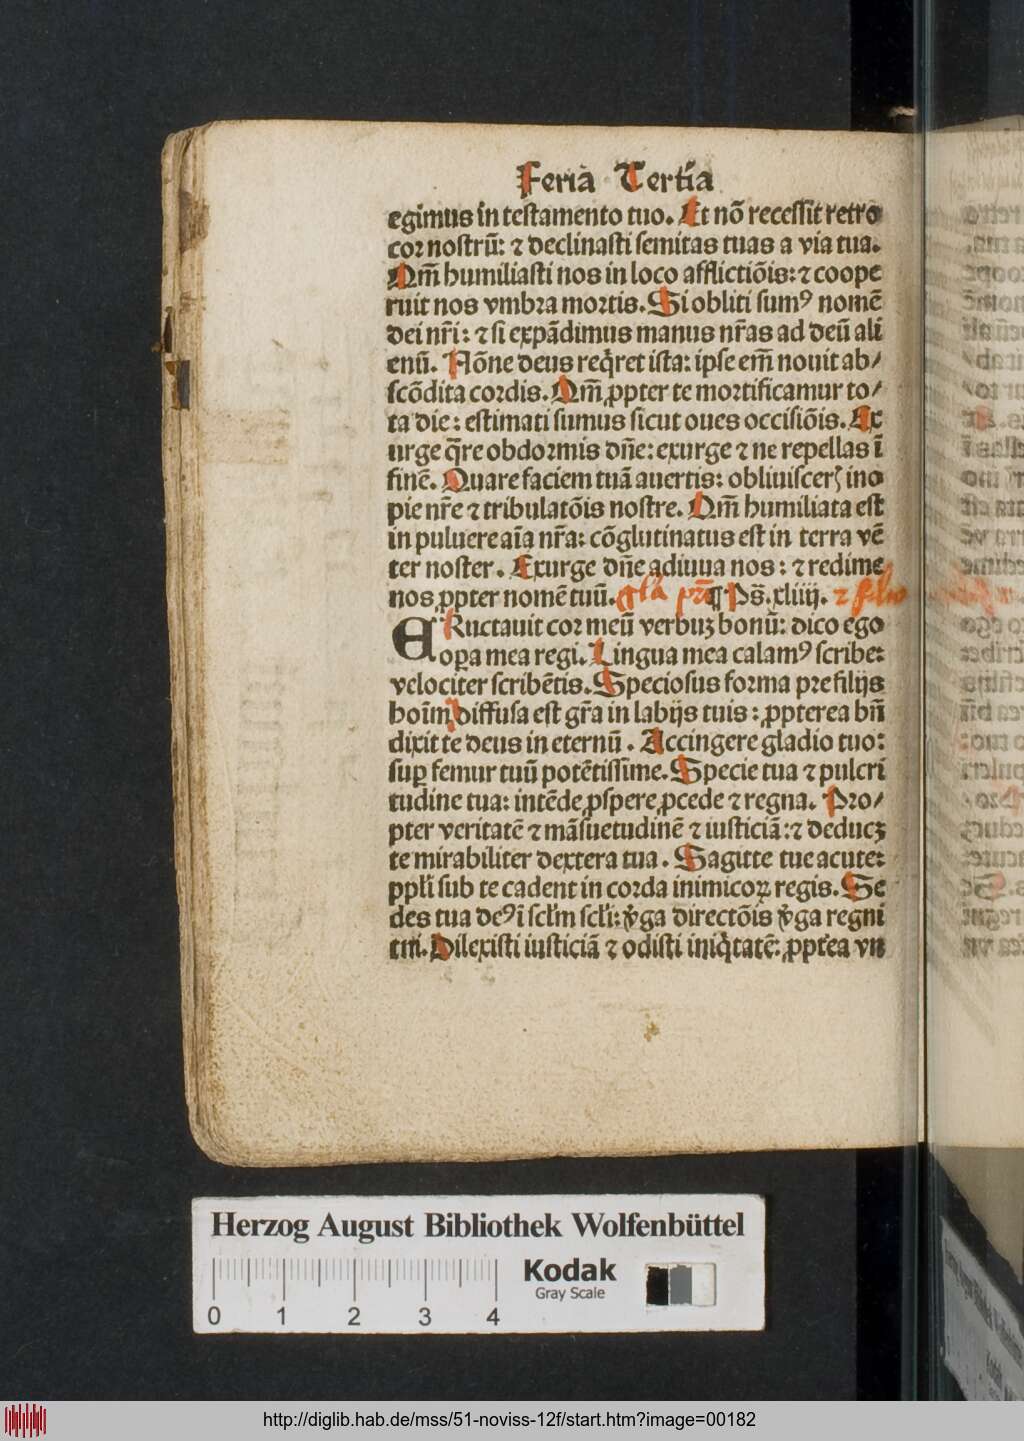 Feria Tertia
egimus in testamento tuo. Et nō recessit retro
cor nostrū: ⁊ declinasti semitas tuas a via tua.
Qm̄ humiliasti nos in loco afflictiōis: ⁊ coope
ruit nos vmbra mortis. Si obliti sumꝰ nomē
dei nr̄i: ⁊ si expādimus manus nr̄as ad deū ali
enū. Nōne deus reqͥret ista: ipse em̄ nouit ab/
scōdita cordis. Qm̄ ꝓpter te mortificamur to/
ta die: estimati sumus sicut oues occisiōis. Ex
urge q̄re obdormis dn̄e: exurge ⁊ ne repellas ī
finē. Quare faciem tuā auertis: obliuisceris ino
pie nr̄e ⁊ tribulatōis nostre. Qm̄ humiliata est
in puluere aīa nr̄a: cōglutinatus est in terra vē
ter noster. Exurge dn̄e adiuua nos: ⁊ redime
nos ꝓpter nomē tuū. gl̄a pr̄i ¶ Ps̄. xliiij. ⁊ filio
ERuctauit cor meū verbuꝫ bonū: dico ego
oꝑa mea regi. Lingua mea calamꝰ scribe:
velociter scribētis. Speciosus forma pre filijs
hoīm diffusa est gr̄a in labijs tuis: ꝓpterea bn̄
dixit te deus in eternū. Accingere gladio tuo:
suꝑ femur tuū potētissime. Specie tua ⁊ pulcri
tudine tua: intēde ꝓspere ꝓcede ⁊ regna. Pro/
pter veritatē ⁊ māsuetudinē ⁊ iusticiā: ⁊ deducꝫ
te mirabiliter dextera tua. Sagitte tue acute:
ppl̄i sub te cadent in corda inimicoꝝ regis. Se
des tua deꝰ ī scl̄m scl̄i: v̓ga directōis v̓ga regni
tui. Dilexisti iusticiā ⁊ odisti iniqͥtatē: ꝓpt̓ea vn
Herzog August Bibliothek Wolfenbüttel
Kodak
Gray Scale
0 1 2 3 4
http://diglib.hab.de/mss/51-noviss-12f/start.htm?image=00182